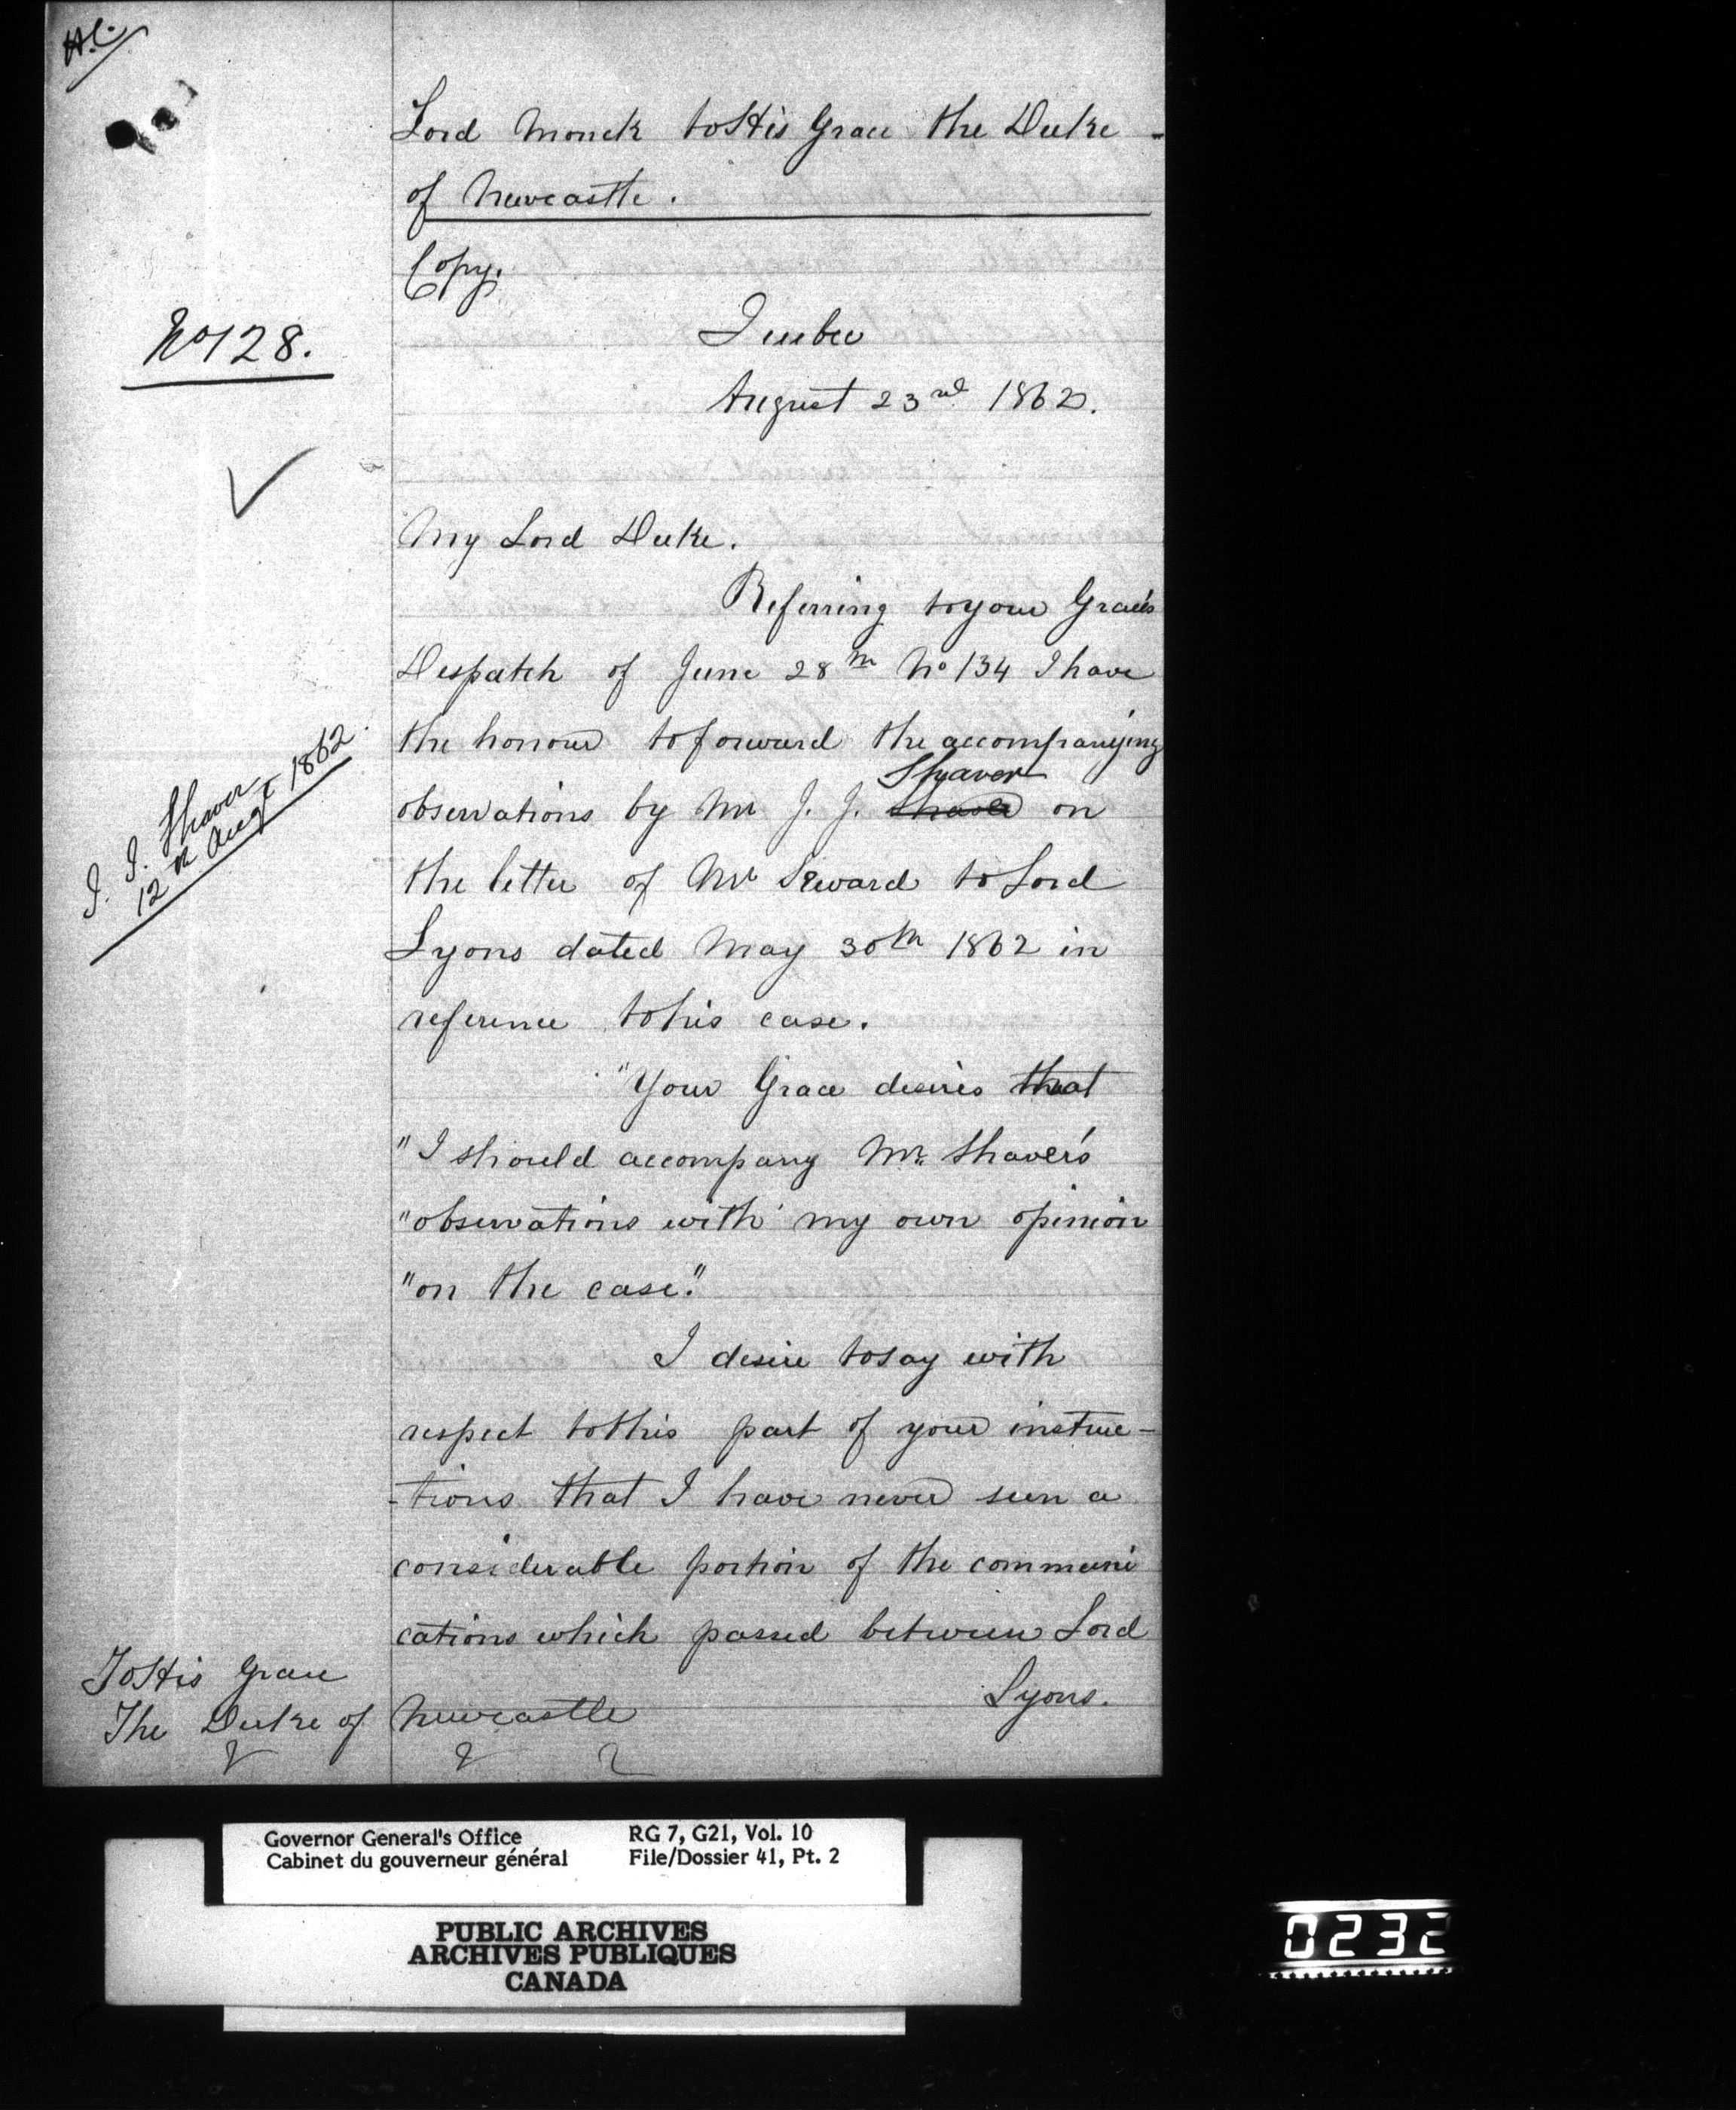 H.C.
Lord Monck to His Grace the Duke -
of Newcastle.
Copy.
No 128.
Quebec
August 23rd 1862.
My Lord Duke.
Referring to your Grace's
Despatch of June 28th No 134 I have
the honour to forward the accompanying
Shaver
observations by Mr J. J. on
J. J. Shaver
12th Augt 1862.
the letter of Mr Seward to Lord
Lyons dated May 30th 1862 in
reference to his case.
"Your Grace desires that
"I should accompany Mr. Shaver's
"observations with my own opinion
"on the case."
I desire to say with
respect to this part of your instruc-
-tions that I have never seen a
considerable portion of the communi
cations which passed between Lord
Lyons.
To His Grace
The Duke of Newcastle
Governor General's Office RG 7, G21, Vol. 10
Cabinet du gouverneur général File/Dossier 41, Pt. 2
PUBLIC ARCHIVES
ARCHIVES PUBLIQUES
CANADA
0232